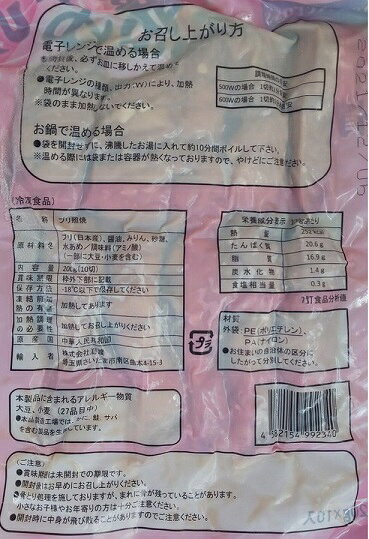 お召し上がり方
電子レンジで温める場合
必ずお皿に移しかえて温めて
ください。
●電子レンジの種類、出力(W)により、加熱
時間が異なります。
※袋のまま加熱しないでください。
500Wの場合
600Wの場合
お鍋で温める場合
●袋を開封せずに、沸騰したお湯に入れて約10分間ボイルして下さい。
※温める際には袋または容器が熱くなっておりますので、やけどにご注意ください。
(冷凍食品)
名称 ブリ照焼
原材料名 ブリ(日本産)、醤油、みりん、砂糖、
水あめ/調味料(アミノ酸)
(一部に大豆・小麦を含む)
内容量 200g(10切)
賞味期限 枠外下部に記載
保存方法 -18℃以下で保存してください
凍結前加熱の有無 加熱してあります
加熱調理の必要性 加熱してお召し上がりください
原産国 中華人民共和国
輸入者 株式会社
埼玉県さいたま市南区 4-15-3
栄養成分表示
熱量 252kcal
たんぱく質 20.6g
脂質 16.9g
炭水化物 1.4g
食塩相当量 0.3g
材質
外袋:PE(ポリエチレン)、
PA(ナイロン)
●お住まいの自治体の区分に
したがって分別してください。
プラ
本製品に含まれるアレルギー物質
大豆、小麦 (27品目中)
●本品製造工場ではかに、鮭、サバ
を含む製品を生産しています。
4 582154 992340
(ご注意)
●賞味期限は未開封での期限です。
●開封後はお早めにお召し上がりください。
●骨とり処理を施しておりますが、まれに骨が残っていることがあります。
小さなお子様やお年寄りの方は十分ご注意ください。
●開封時に中身が飛び散ることがありますのでご注意ください。